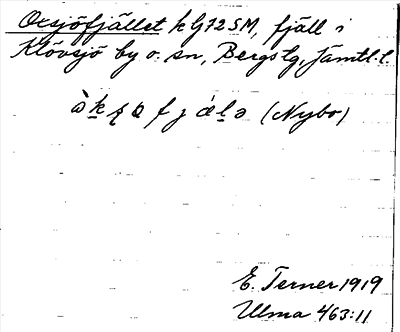 Oxsjöfjället k G72SM, fjäll i
Klövsjö by o. sn, Bergs tg, Jämtl. l.
(Nybo)
E. Terner 1919
Ulma 463:11